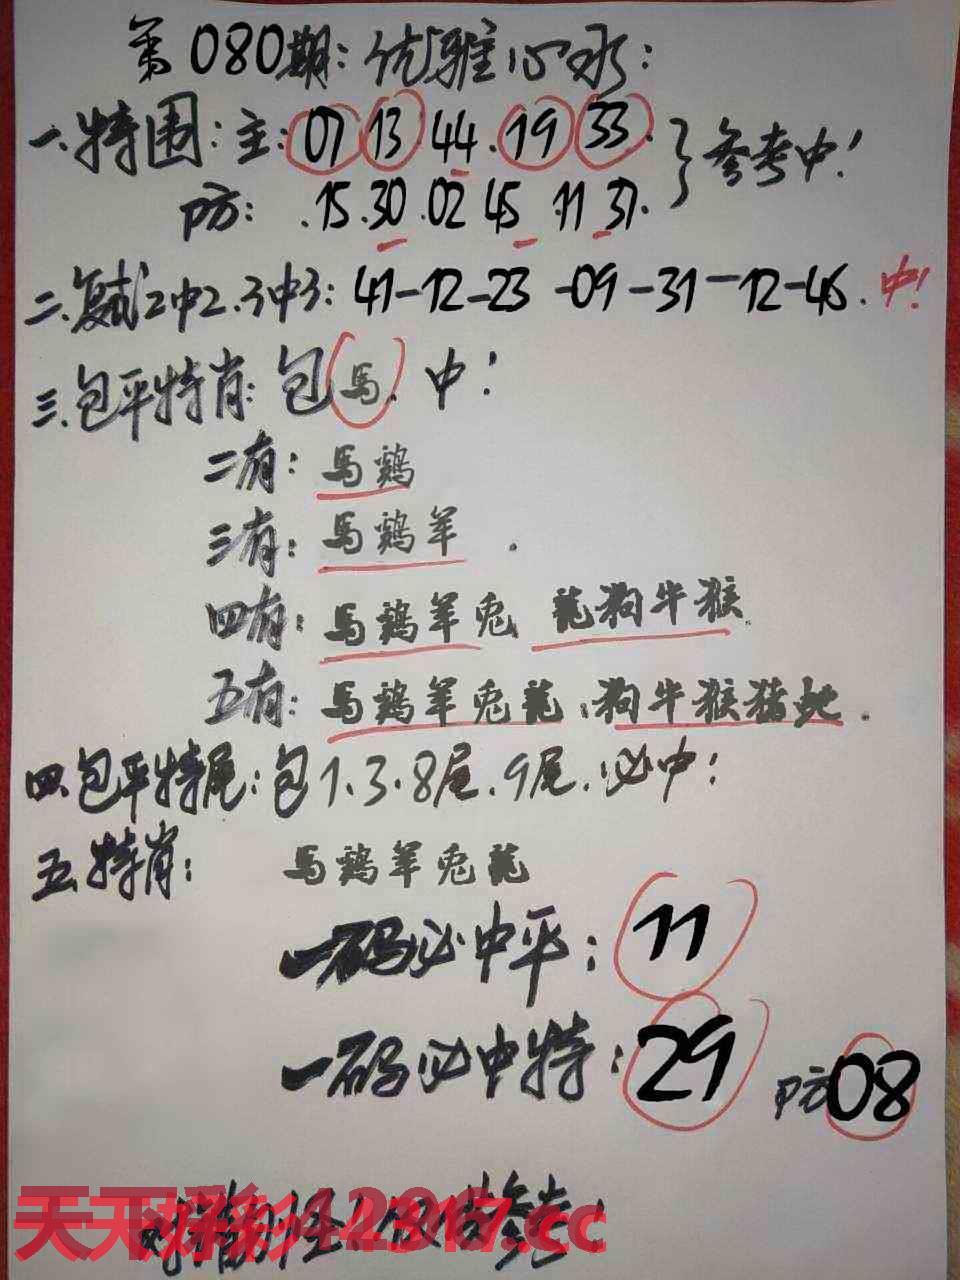 第080期:优雅心水:
一.特围:主:07 13.44.19 33.}参考中!
防:.15.30.02 45 11 37.
二.复式2中2.3中3:41-12-23-09-31-12-46.中!
三.包平特肖:包馬.中!
二有:馬鷄
三有:馬鷄羊.
四有:馬鷄羊兎 龍狗牛猴.
五有:馬鷄羊兎龍.狗牛猴猪蛇.
四.包平特尾:包1.3.8尾.9尾.必中!
五.特肖:馬鷄羊兎龍
一码必中平:11
一码必中特:29 防08
天天彩12317.cc
参考!